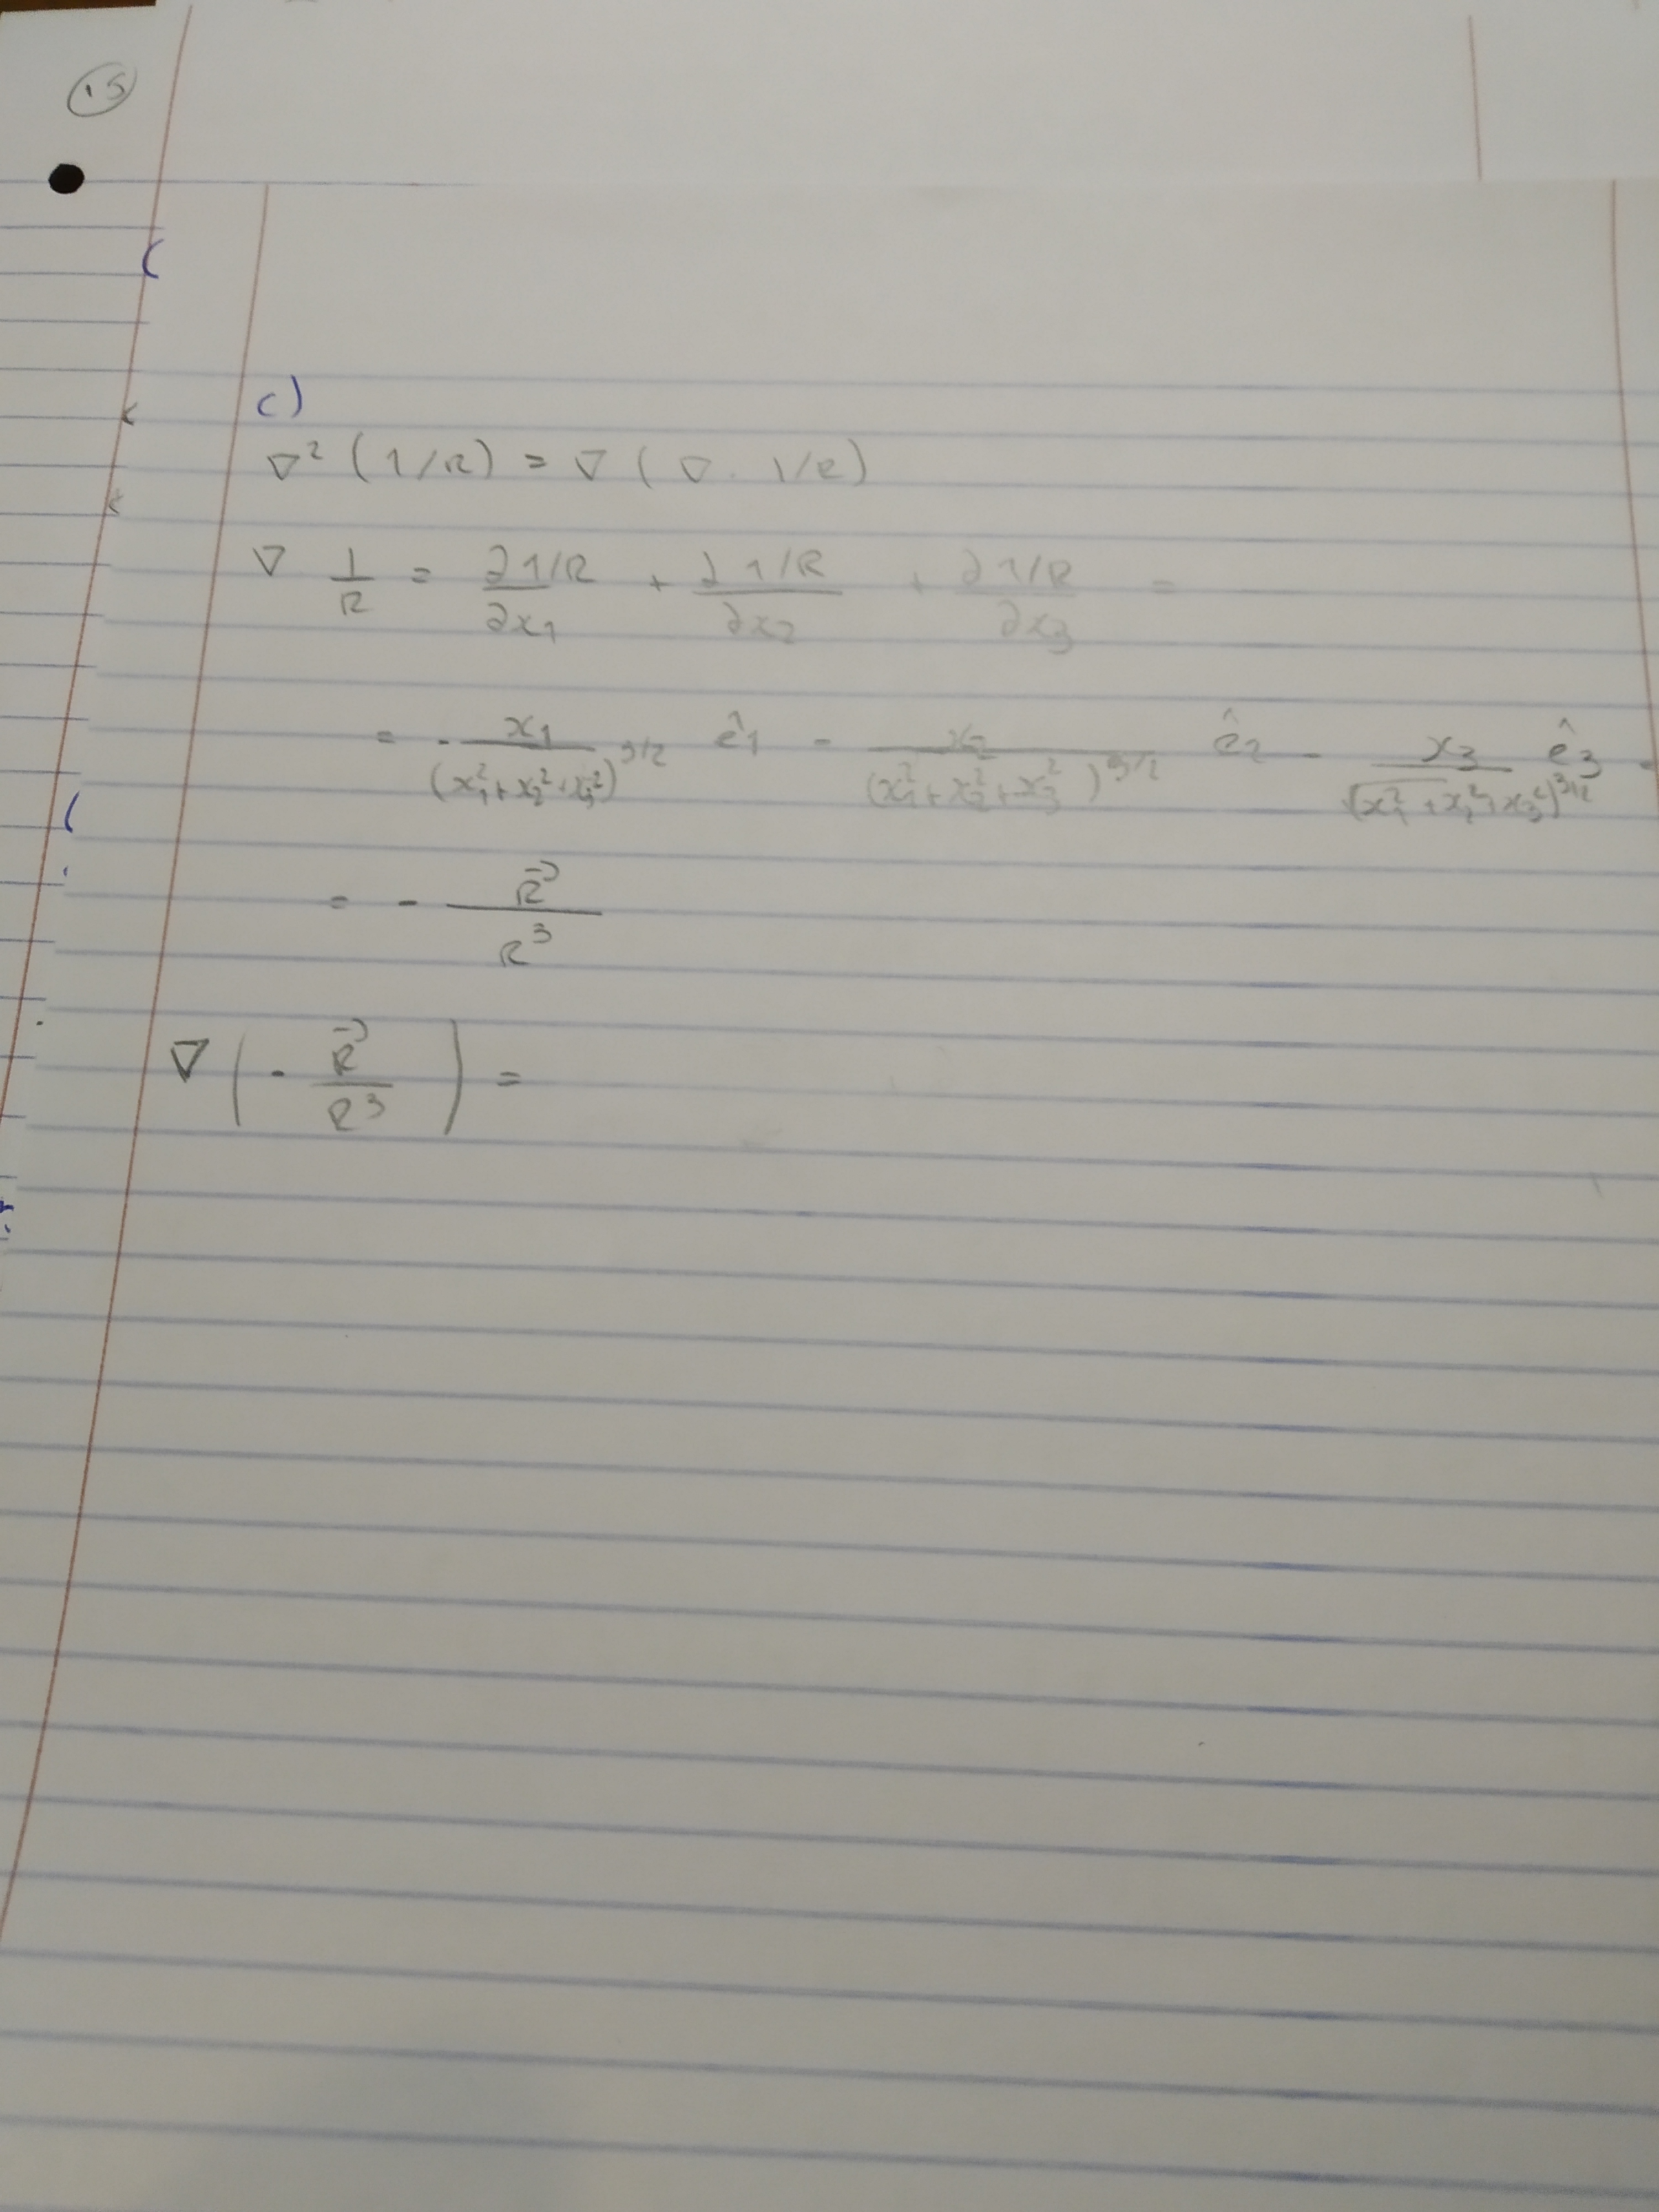 15
c)
∇² (1/R) = ∇ ( ∇ · 1/R )
∇ 1/R = ∂1/R / ∂x₁ + ∂1/R / ∂x₂ + ∂1/R / ∂x₃ =
= - x₁ / (x₁² + x₂² + x₃²)^3/2 ê₁ - x₂ / (x₁² + x₂² + x₃²)^3/2 ê₂ - x₃ / (x₁² + x₂² + x₃²)^3/2 ê₃ =
= - R⃗ / R³
∇ ( - R⃗ / R³ ) =